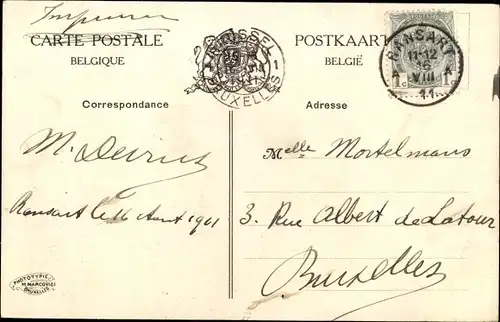 Imprimé
CARTE POSTALE
BELGIQUE
POSTKAART
BELGIË
BRUSSEL
BRUXELLES
1 1
RANSART
11-12
16
VIII
11
1c 1c
Correspondance
Adresse
M. Devrus
Ransart le 16 Aout 1911
Melle Mortelmans
3. Rue Albert de Latour
Bruxelles
PHOTOTYPIE
M MARCOVICI
BRUXELLES